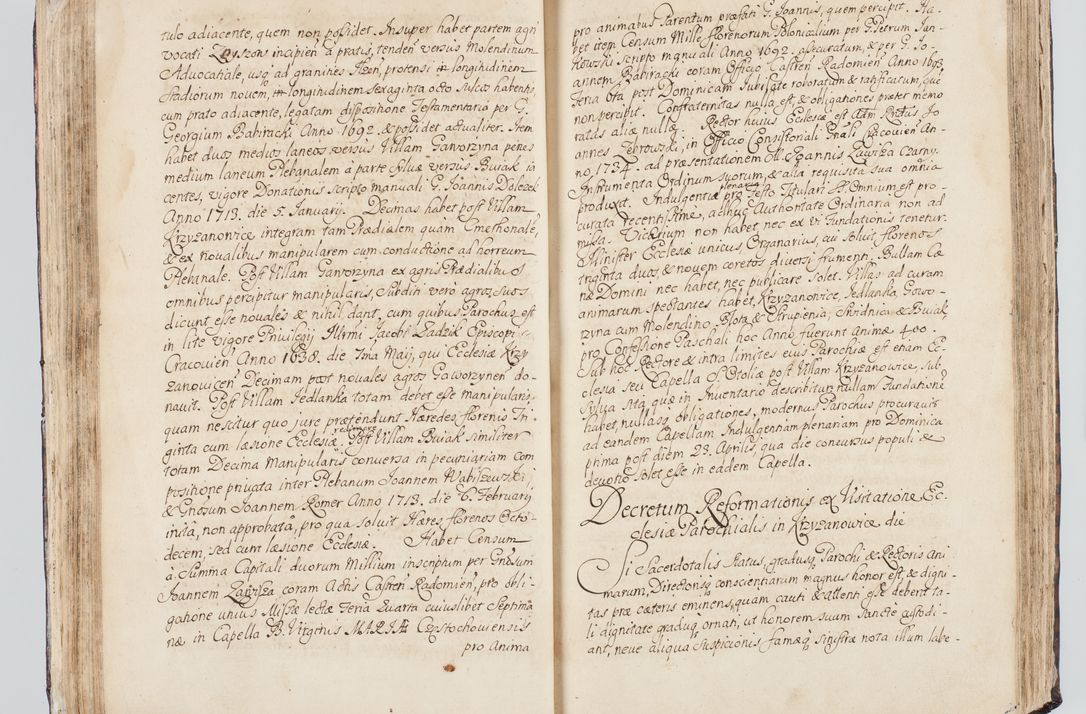 tulo adiacente, quem non possidet. Insuper habet partem agri
vocati Zeyszons incipien à pratis, tenden versus Molendinum
Advocatiale, usq ad granines Ilzen, protensi in longitudinem
stadiorum novem, in longitudinem sexaginta octo sulco habente,
cum prato adiacente, legatam dispositione Testamentaria per G.
Georgium Babiracki Anno 1692. & possidet actualiter. Item
habet duos medios laneos versus Villam Gaworzyna penes
medium laneum Plebanalem à parte sylvæ versus Buiak ia
centes, vigore Donationis scripto manuali G. Joannis Dolezek
Anno 1713. die 5. January. Decimas habet post Villam
Krzyzanowice integram tam Prædialem quam Cmethonale,
& ex novalibus manipularem cum conductione ad horreum
Plebanale. Post Villam Gaworzyna ex agris Prædialibus
omnibus percipitur manipularis, subditi verò agros suos
dicunt esse novales & nihil dant, cum quibus Parochus est
in lite vigore Privilegij Illrmi Jacobi Zadzik Episcopi
Cracovien Anno 1638. die Ima Maij, qui Ecclesiæ Krzy
zanovicen Decimam post novales agros Gaworzynen do-
navit. Post Villam Jedlanka totam debet esse manipularis,
quam nescitur quo jure prætendunt Hæredes florenis Tri-
ginta cum læsione Ecclesiæ redimere. Post Villam Buiak similiter
totam Decima Manipularis conversa in pecuniariam com
positione privata inter Plebanum Joannem Wabiszewski,
& Gnosum Joannem Romer Anno 1713. die 6. February
inita, non approbata, pro qua solvit Hæres florenos Octo-
decem, sed cum læsione Ecclesiæ. Habet Censum
à Summa Capitali duorum Millium inscriptum per Gnosum
Joannem Zawisza coram Actis Castren Radomien, pro obli-
gatione unius Missæ lectæ Feria Quarta cuiuslibet Septima
næ in Capella B. Virginis MARIÆ Częstochoviensis
pro Anima
pro animabus Parentum præfati G. Joannis, quem percipit. Ha-
bet item Censum Mille florenorum Polonicalium per G. Petrum Jan-
kowski scripto manuali Anno 1692. assecuratum, & per G. Jo-
annem Babiracki coram Officio Castren Radomien Anno 1693.
Feria 6ta post Dominicam Jubilate roboratum & ratificatum, que
non percipit. Confraternitas nulla est, & obligationes præter memo
ratas aliæ nullæ. Rector huius Eclesiæ est Adm Rndus Jo
annes Zebrowski, in Officio Consistoriali Gnali Cracovien An-
no, 1734. ad præsentationem M. Joannis Zawisza Czarny.
Instrumenta Ordinum suorum, & alia requisita sua omnia
produxit. Indulgentiæ plenariæ pro Festo Titulari SS. Omnium est pro-
curata recentissime, adhuc Authoritate Ordinaria non ad
missa. Vicarium non habet, nec ex vi Fundationis tenetur.
Minister Ecclesiæ unicus Organarius, cui solvit florenos
triginta duos & novem coretos diversi frumenti. Bullam Cæ
næ Domini nec habet, nec publicare solet. Villas ad curam
animarum spectantes habet, Krzyzanowice, Jedlanka, Gowo-
rzyna cum Molendino, Blota, & Strupienia, Srudnica, & Buiak,
pro Confessione Paschali hoc Anno fuerunt Animæ 400.
Sub hoc Rectore & intra limites eius Parochiæ est etiam Ec-
clesia seu Capella S. Otoliæ post Villam Krzyzanowice, sub
sylva sita, quæ in Inventario describitur, nullam Fundatione
habet, nullasq obligationes, modernus Parochus procuravit
ad eandem Capellam Indulgentiam plenariam pro Dominica
prima post diem 23. Aprilis, qua die concursus populi &
devotio solet esse in eadem Capella.
Decretum Reformationis ex Visitatione Ec-
clesiæ Parochialis in Krzyzanowice die
Si Sacerdotalis status, gradusq Parochi & Rectoris Ani
marum, Directorisq conscientiarum magnus honor est, & digni-
tas præ cæteris eminens, quam cauti & attenti esse debent ta-
li dignitate graduq ornati, ut honorem suum sancte custodi-
ant, neve aliqua suspicionis famæq sinistræ nota illum labe-